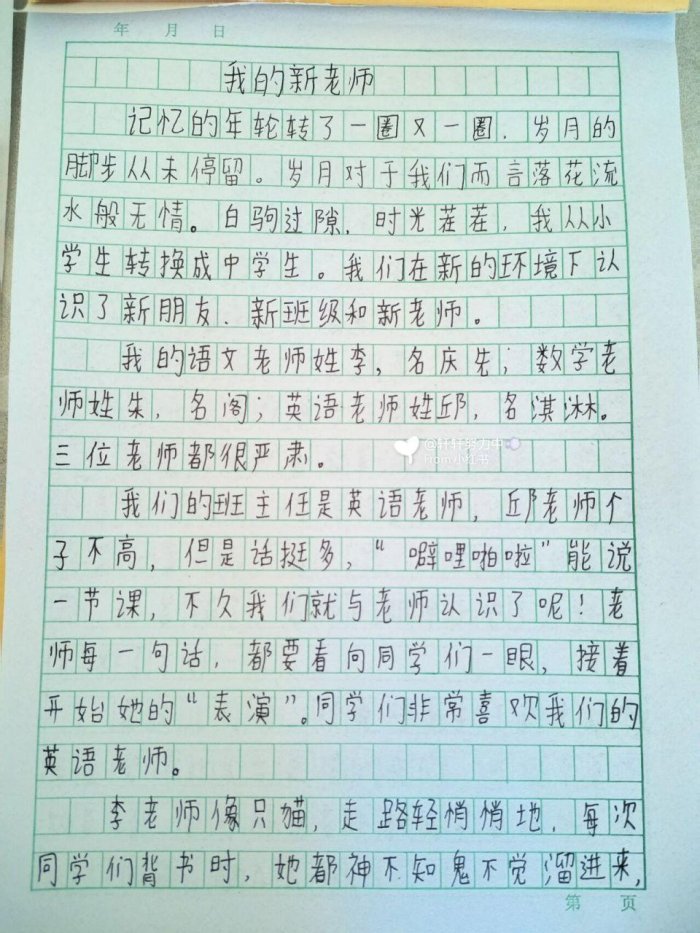 年 月 日
我的新老师
记忆的年轮转了一圈又一圈，岁月的
脚步从未停留。岁月对于我们而言落花流
水般无情。白驹过隙，时光荏苒，我从小
学生转换成中学生。我们在新的环境下认
识了新朋友、新班级和新老师。
我的语文老师姓李，名庆先；数学老
师姓朱，名阁；英语老师姓邱，名淇淋。
@轩轩努力中
From小红书
三位老师都很严肃。
我们的班主任是英语老师，邱老师个
子不高，但是话挺多，“噼哩啪啦”能说
一节课，不久我们就与老师认识了呢！老
师每一句话，都要看向同学们一眼，接着
开始她的“表演”。同学们非常喜欢我们的
英语老师。
李老师像只猫，走路轻悄悄地，每次
同学们背书时，她都神不知鬼不觉溜进来，
第 页